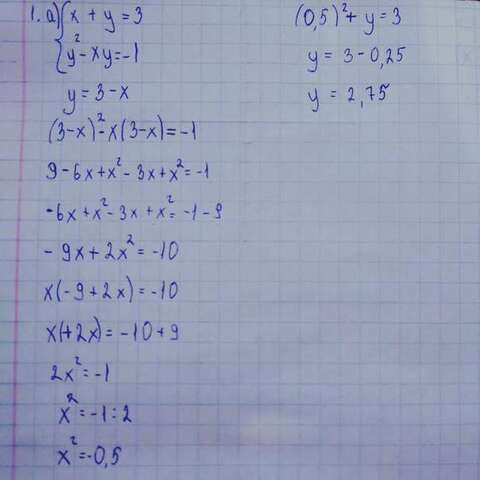 1. a) { x + y = 3
y² - xy = -1
y = 3 - x
(3-x)² - x(3-x) = -1
9 - 6x + x² - 3x + x² = -1
-6x + x² - 3x + x² = -1 - 9
- 9x + 2x² = -10
x(-9 + 2x) = -10
x(+2x) = -10 + 9
2x² = -1
x² = -1 : 2
x² = -0,5
(0,5)² + y = 3
y = 3 - 0,25
y = 2,75